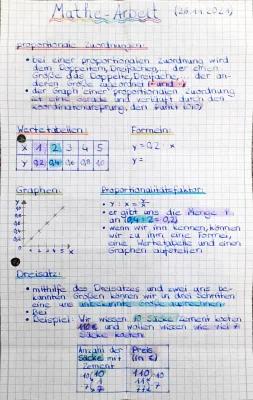 Mathe-Arbeit (26.11.2021)
proportionale Zuordnungen:
• bei einer proportionalen Zuordnung wird
dem Doppelten, Dreifachen,... der einen
Größe das Doppelte, Dreifache,... der an-
deren Größe zugeordnet
• der Graph einer proportionalen Zuordnung
ist eine Gerade und verläuft durch den
Koordinatenursprung, den Punkt (0|0)
Wertetabellen:
Formeln:
x 1 2 3 4 5
y 0,2 0,4 0,6 0,8 1,0
y = 0,2 · x
y =
Graphen:
Proportionalitätsfaktor:
• er gibt uns die Menge
an (0,4 : 2 = 0,2)
• wenn wir ihn kennen, können
wir zu ihm eine Formel,
eine Wertetabelle und einen
Graphen aufstellen
Dreisatz:
• mithilfe des Dreisatzes und zwei uns be-
kannten Größen können wir in drei Schritten
eine uns unbekannte Größe ausrechnen
• Bei
• Beispiel: Wir wissen 10 Säcke Zement kosten
110€ und wollen wissen wie viel 7
Säcke kosten
Anzahl der Säcke mit Zement
Preis (in €)
10 110
1 11
7 77